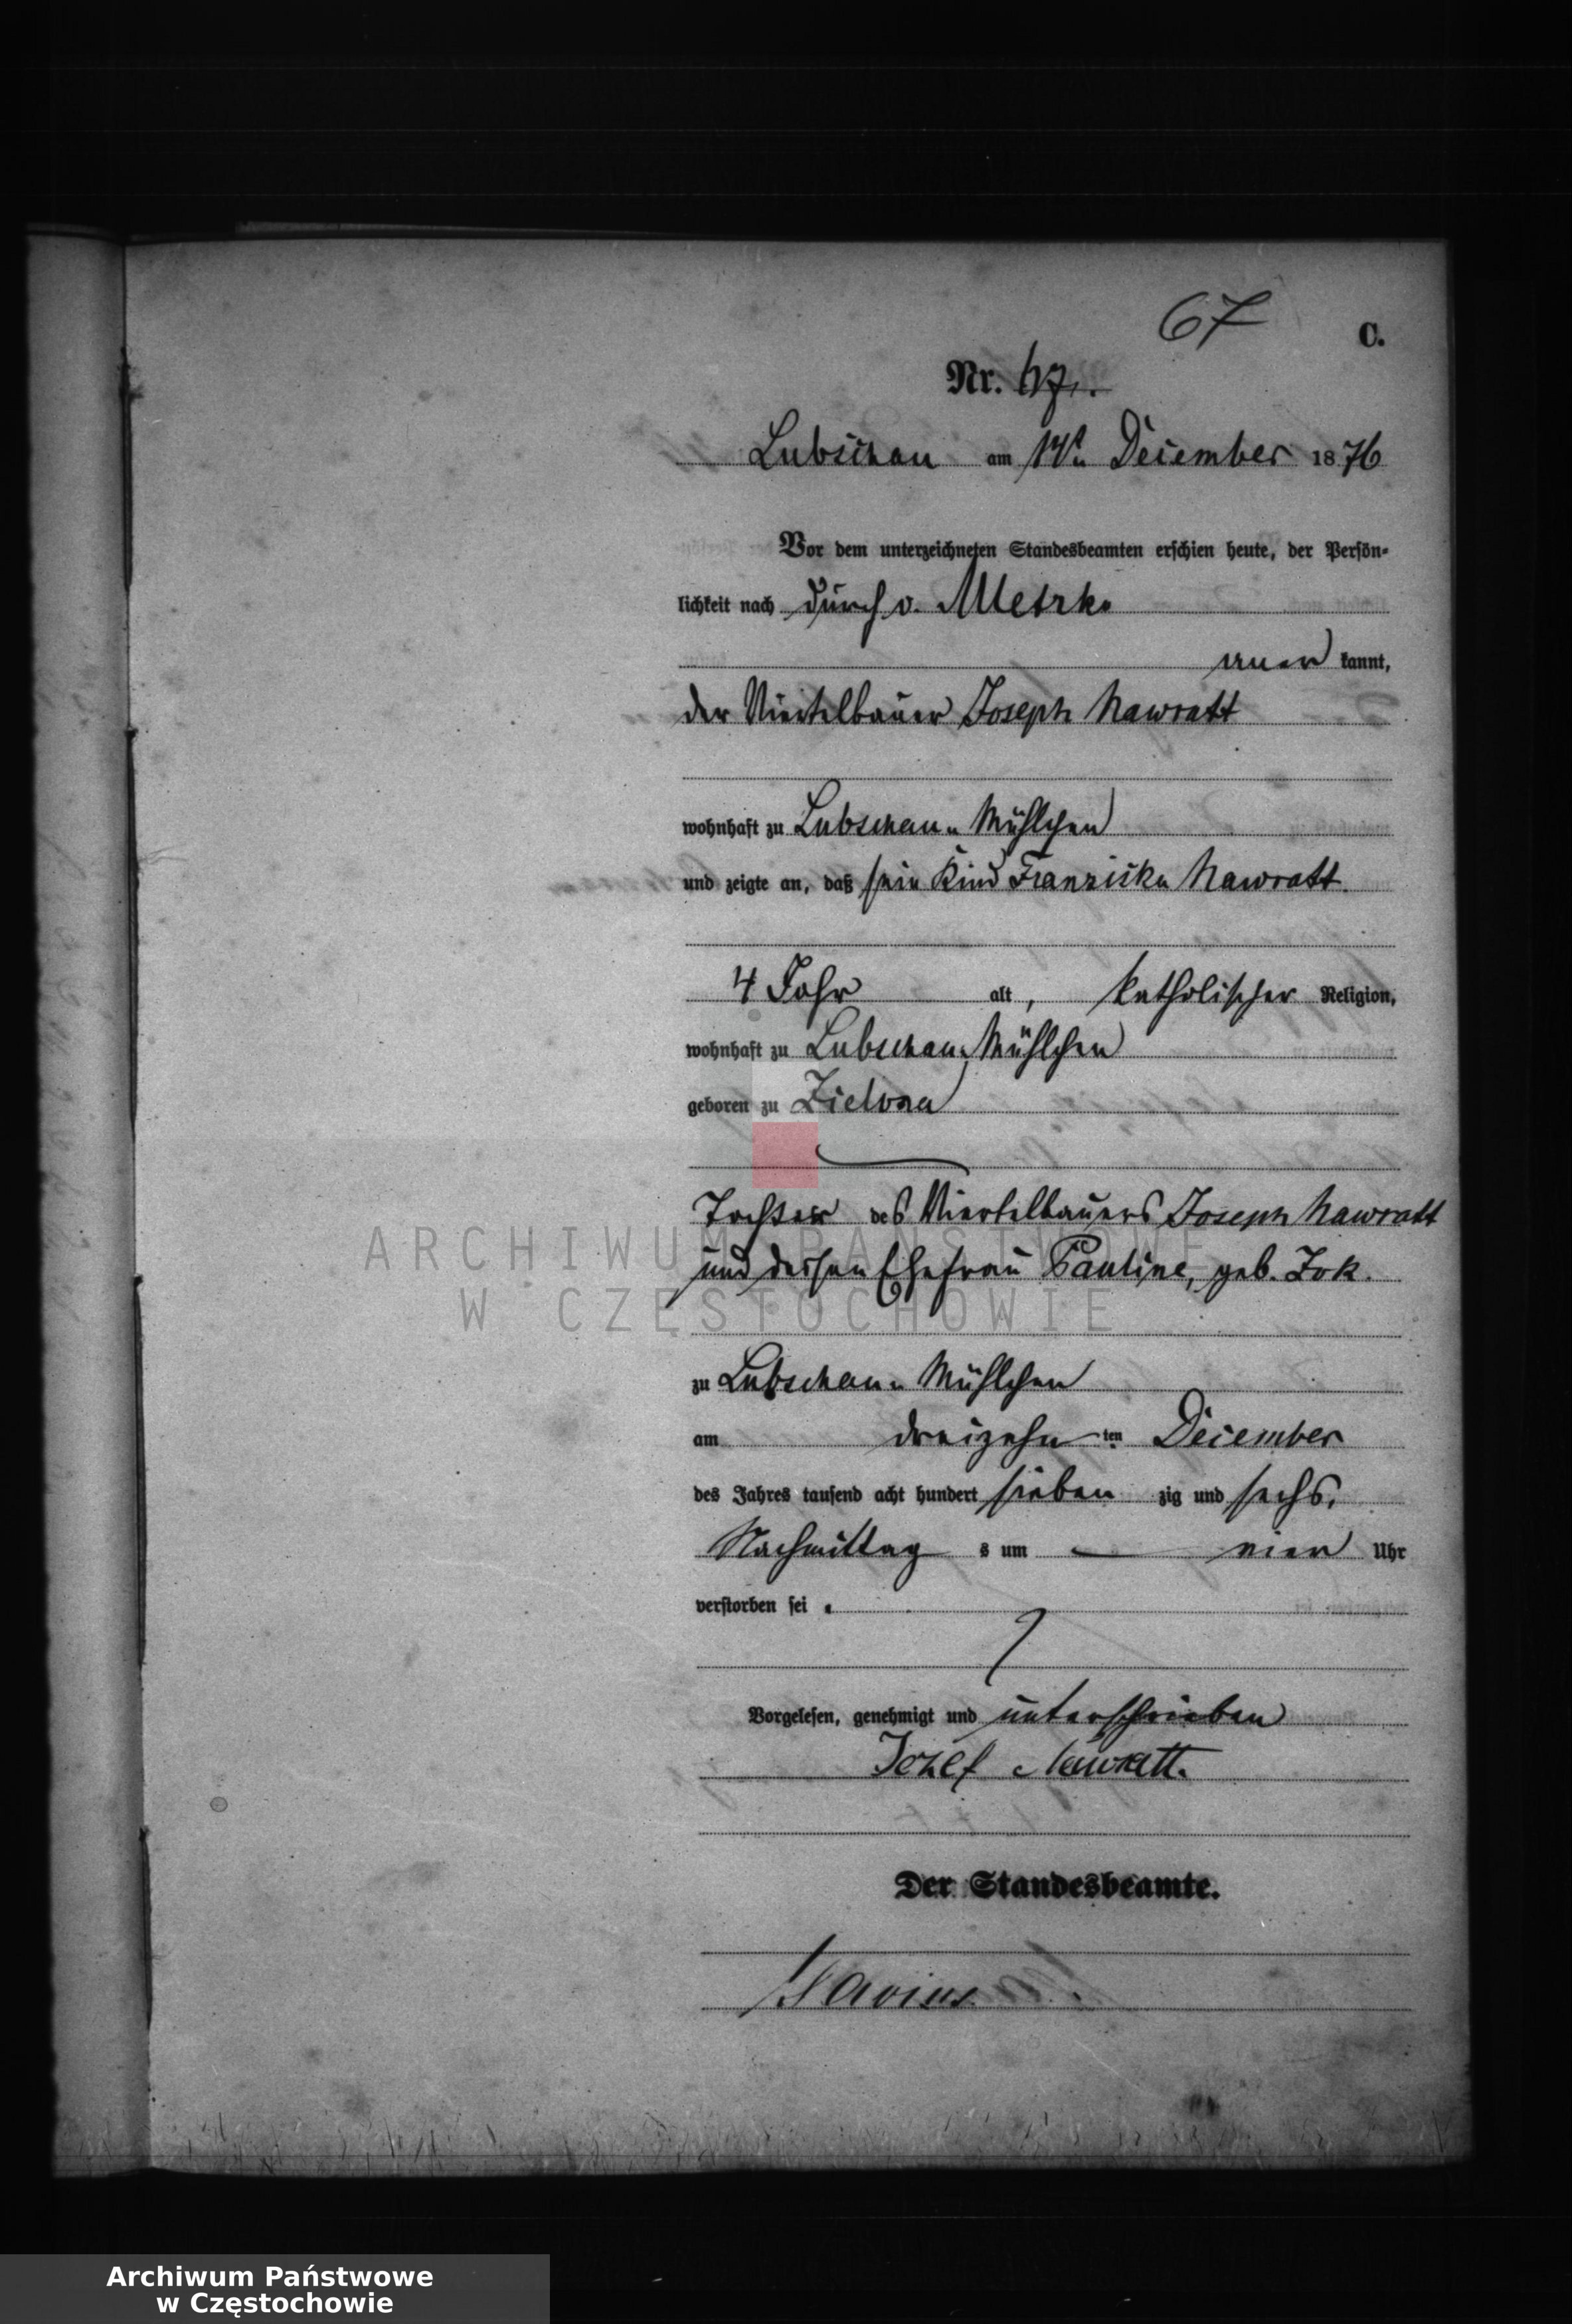 67
C.
Nr. 67.
Lubschau am 14t. December 1876
Vor dem unterzeichneten Standesbeamten erschien heute, der Persön-
lichkeit nach durch v. Metzke
aner kannt,
der Viertelbauer Joseph Nawratt
wohnhaft zu Lubschau. Mühlchen
und zeigte an, daß sein Kind Franziska Nawratt.
4 Jahr alt, katholischer Religion,
wohnhaft zu Lubschau. Mühlchen
geboren zu Zielona
Tochter des Viertelbauers Joseph Nawratt
und dessen Ehefrau Pauline, geb. Zok.
ARCHIWUM PAŃSTWOWE
W CZĘSTOCHOWIE
zu Lubschau. Mühlchen
am dreizehn ten December
des Jahres tausend acht hundert sieben zig und sechs,
Nachmittag s um vier Uhr
verstorben sei.
Vorgelesen, genehmigt und unterschrieben
Jozef Nawratt.
Der Standesbeamte.
Archiwum Państwowe
w Częstochowie